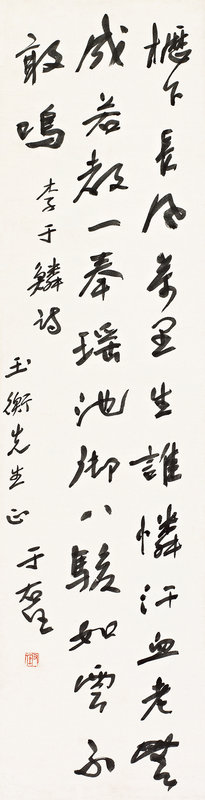 櫪下長風萬里生誰憐汗血老無
成若教一奉瑶池御八駿如雲不
敢鳴
李于鱗詩
玉衡先生正
于右任